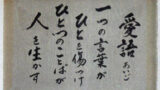 愛語
あいご
一つの言葉が
ひとを傷つけ
ひとつのことばが
人を生かす